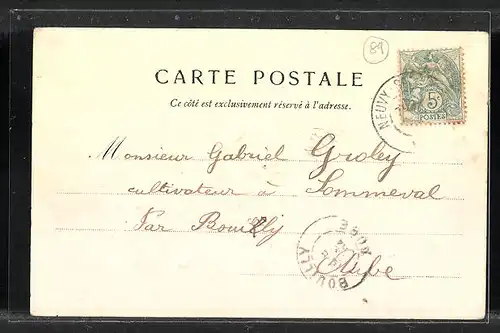 89
CARTE POSTALE
Ce côté est exclusivement réservé à l'adresse.
NEUVY
5c
POSTES
Monsieur Gabriel Groley
cultivateur à Sommeval
Par Bouilly
Aube
BOUILLY
AUBE